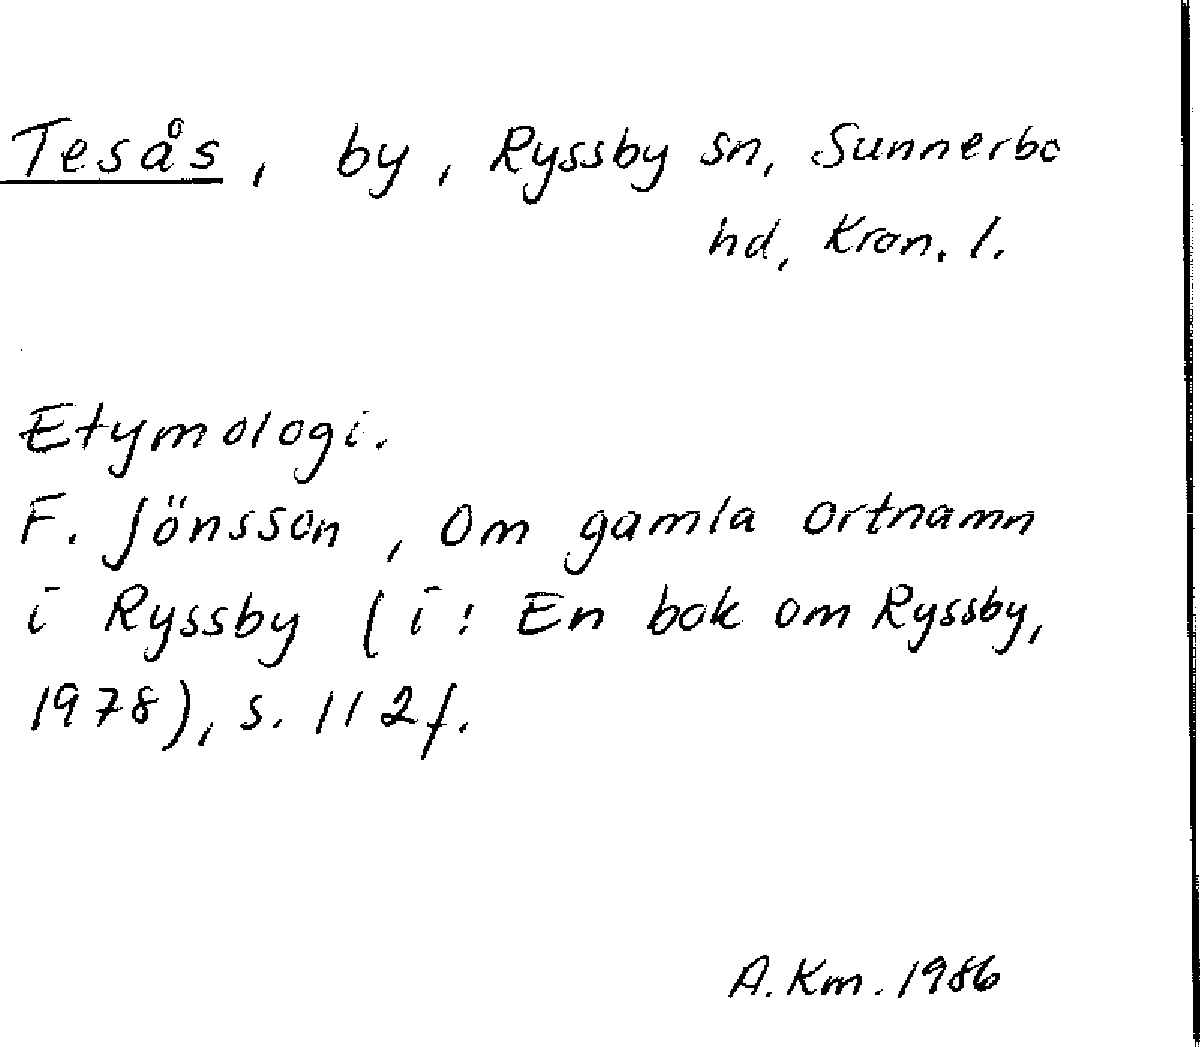 Tesås, by, Ryssby sn, Sunnerbo
hd, Kron. l.
Etymologi.
F. Jönsson, Om gamla ortnamn
i Ryssby (i: En bok om Ryssby,
1978), s. 112f.
A. Km. 1986